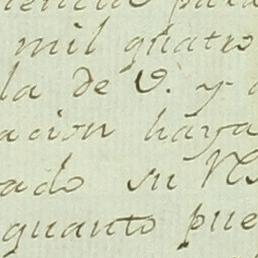 para
mil quatro
la de V. y
acion haya
ado su
quanto pue